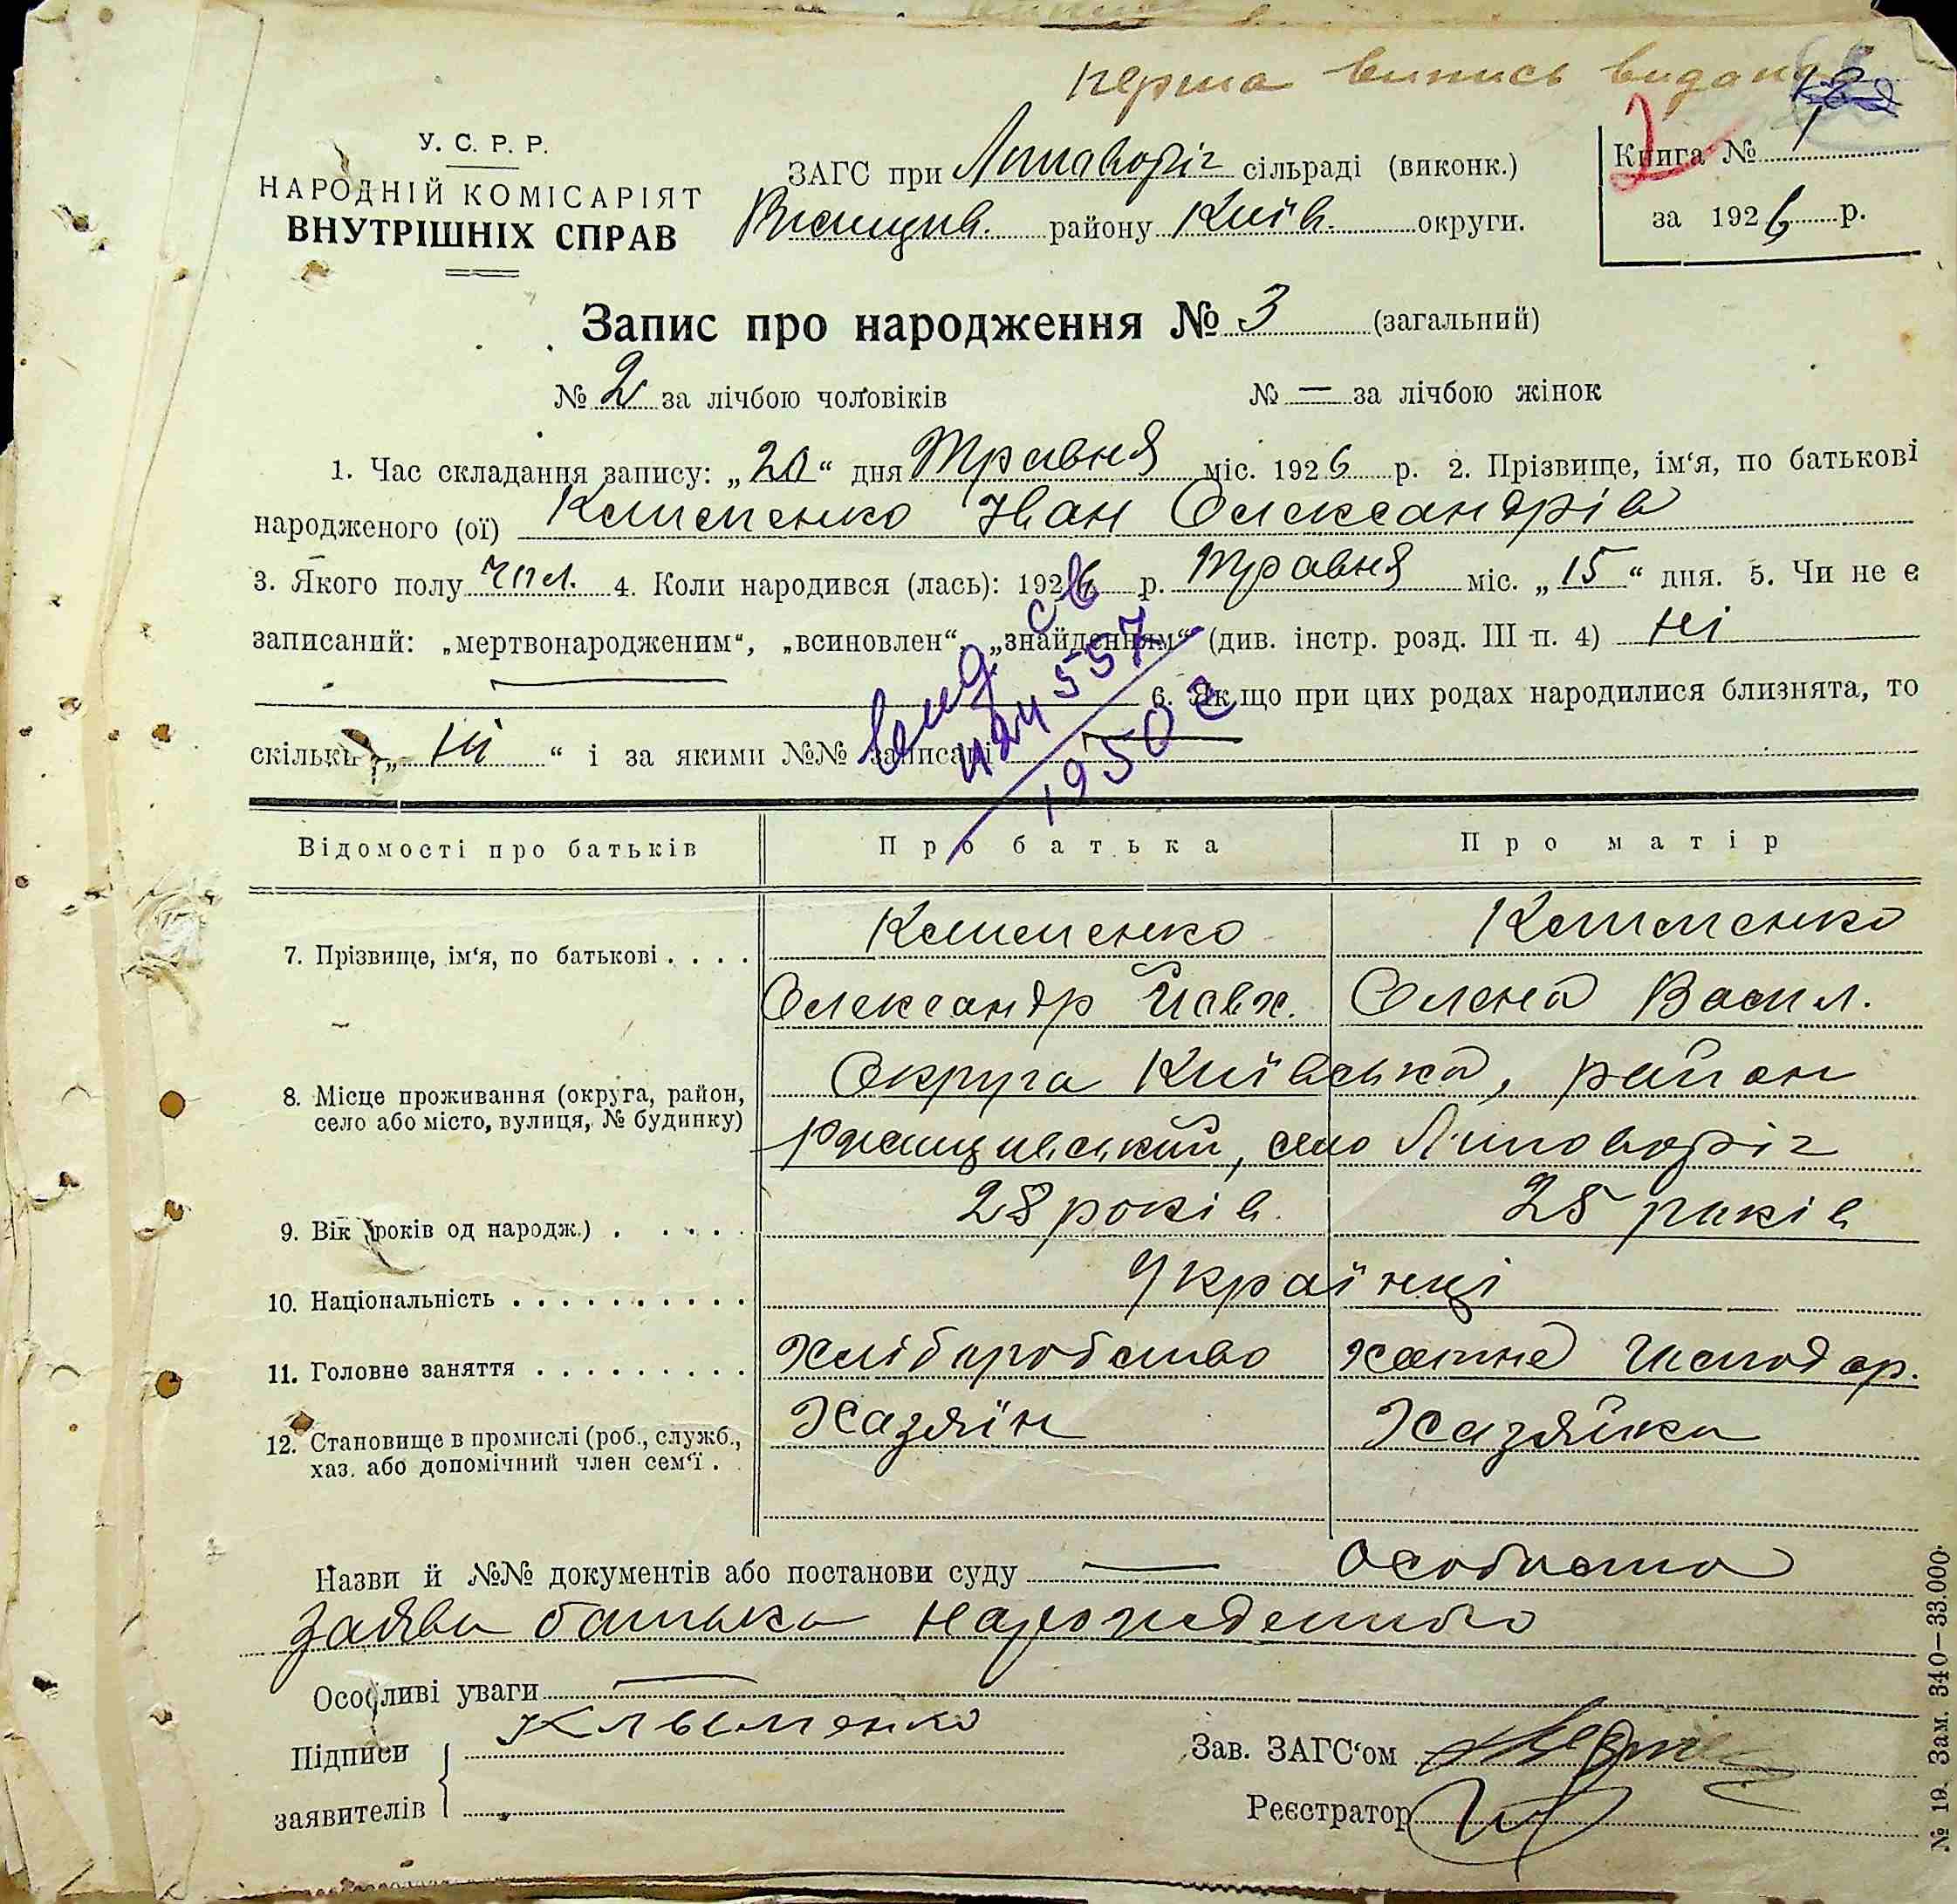 перша випись видана
У. С. Р. Р.
НАРОДНІЙ КОМІСАРІЯТ
ВНУТРІШНІХ СПРАВ
ЗАГС при Липоворіг сільраді (виконк.)
Ржищив. району Київ. округи.
Книга № 1
2
за 1926 р.
Запис про народження № 3 (загальний)
№ 2 за лічбою чоловіків № — за лічбою жінок
1. Час складання запису: „20“ дня Травня міс. 1926 р. 2. Прізвище, ім‘я, по батькові
народженого (ої) Клименко Іван Олександрів
3. Якого полу чол. 4. Коли народився (лась): 1926 р. травня міс. „15“ дня. 5. Чи не є
записаний: „мертвонародженим“, „всиновлен“, „знайденням“ (див. інстр. розд. III п. 4) ні
6. Якщо при цих родах народилися близнята, то
скільки „ ні “ і за якими №№ записані
вид. св
557
1950 г
Відомості про батьків Про батька Про матір
7. Прізвище, ім‘я, по батькові . . . . Клименко Клименко
Олександр Олена Васил.
8. Місце проживання (округа, район, село або місто, вулиця, № будинку) Округа Київська, район
Ржищивський, село Липоворіг
9. Вік (років од народж.) . . . . . 28 років. 25 років
10. Національність . . . . . . . . . . Українці
11. Головне заняття . . . . . . . . . Хліборобство хатне господар.
12. Становище в промислі (роб., служб., хаз. або допомічний член сем‘ї . Хазяїн Хазяйка
Назви й №№ документів або постанови суду — Особиста
заява батька народженого
Особливі уваги —
Підписи Клыменко Зав. ЗАГС‘ом
заявителів Реєстратор
№ 19. Зам. 340—33.000.